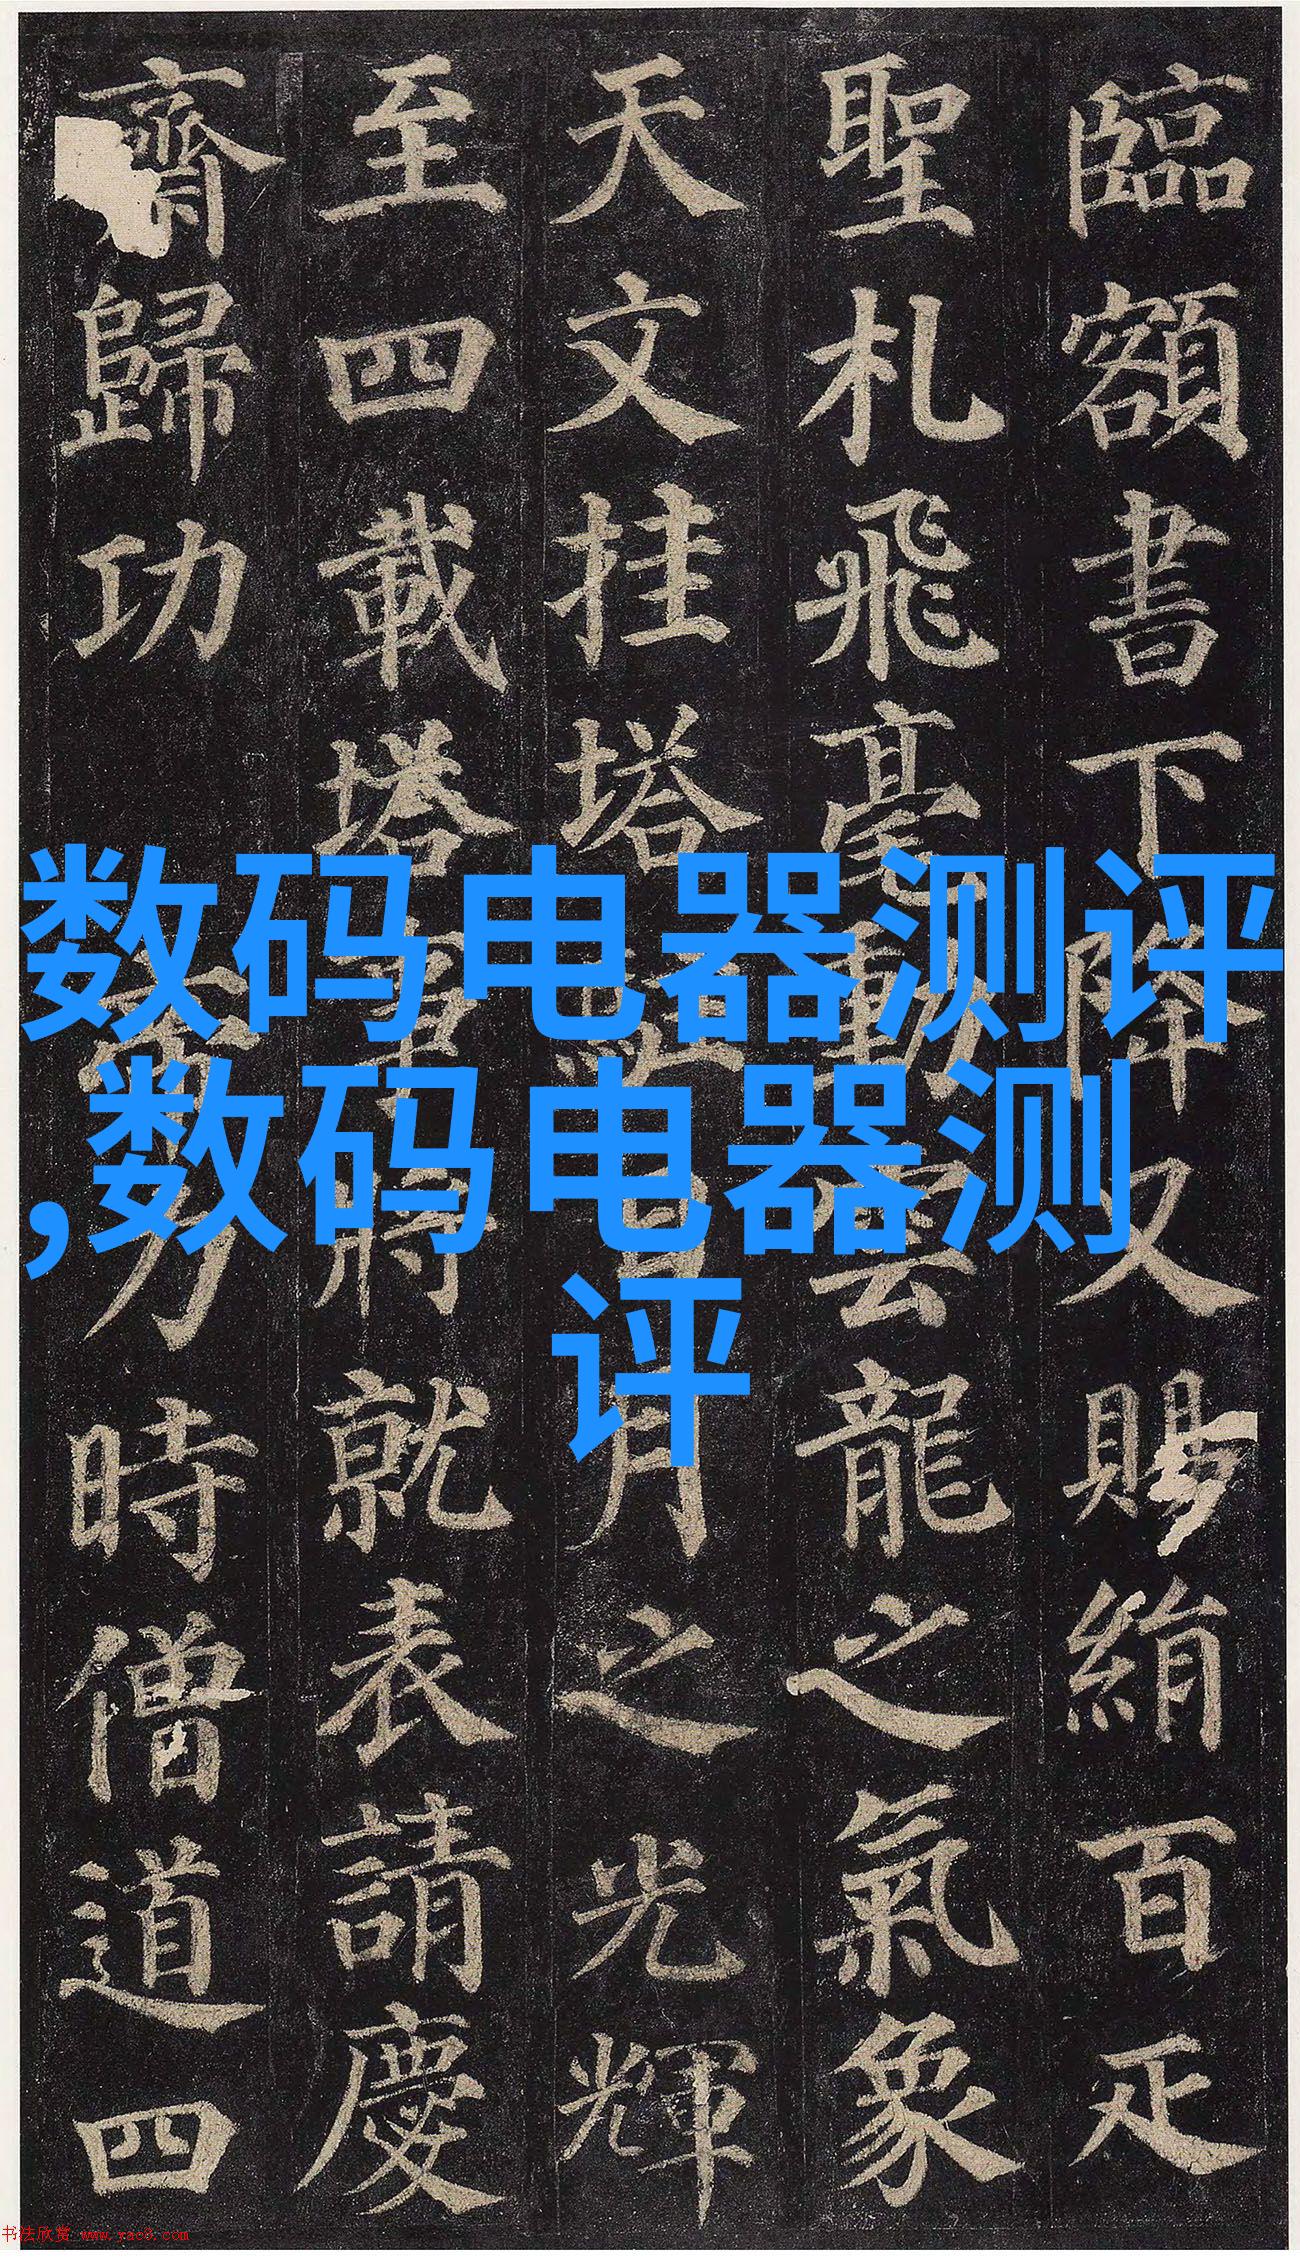 臨額書下降又賜絹百疋
聖札飛毫動雲龍之氣象
天文挂塔 日月之光輝
至四載塔事將就表請慶
齋歸功
帝力時僧道四
数码电器测评
,数码电器测
评
书法欣赏 www.yac8.com